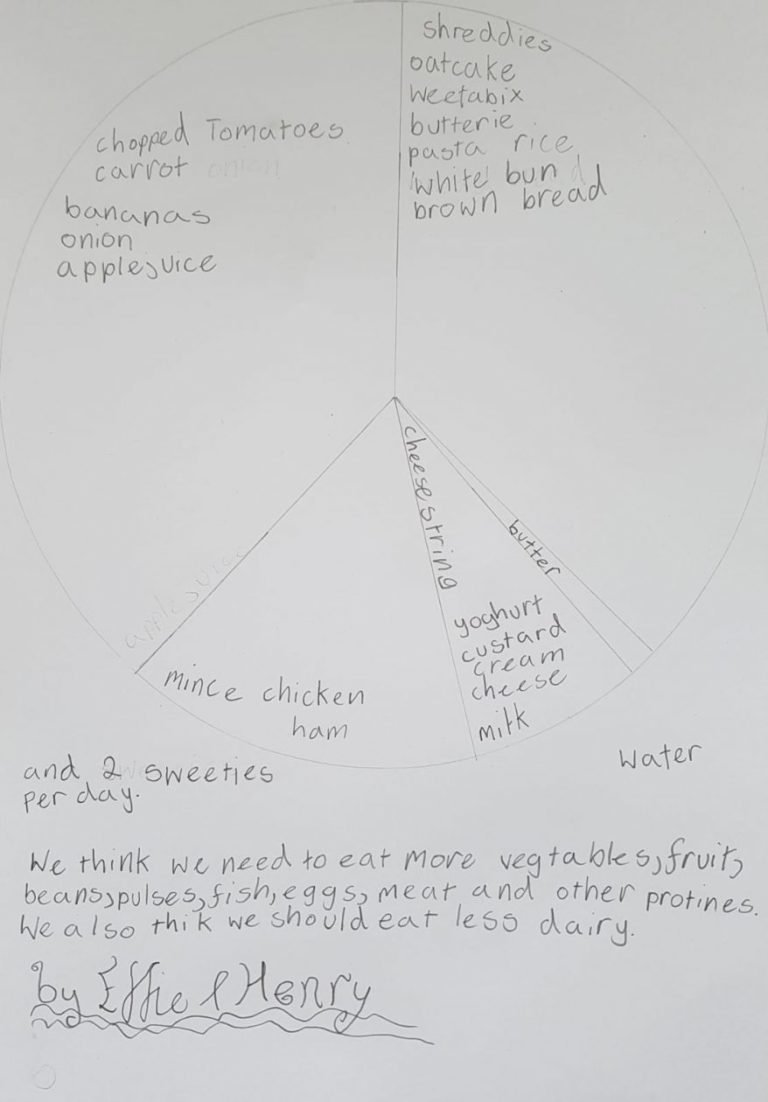 shreddies
oatcake
weetabix
butterie
pasta rice
white bun
brown bread
chopped Tomatoes
carrot onion
bananas
onion
applejuice
cheesestring
butter
yoghurt
custard
cream
cheese
milk
applejuice
mince chicken
ham
water
and 2 sweeties
per day.
We think we need to eat more vegtables, fruit,
beans, pulses, fish, eggs, meat and other protines.
We also thik we should eat less dairy.
by Effie & Henry